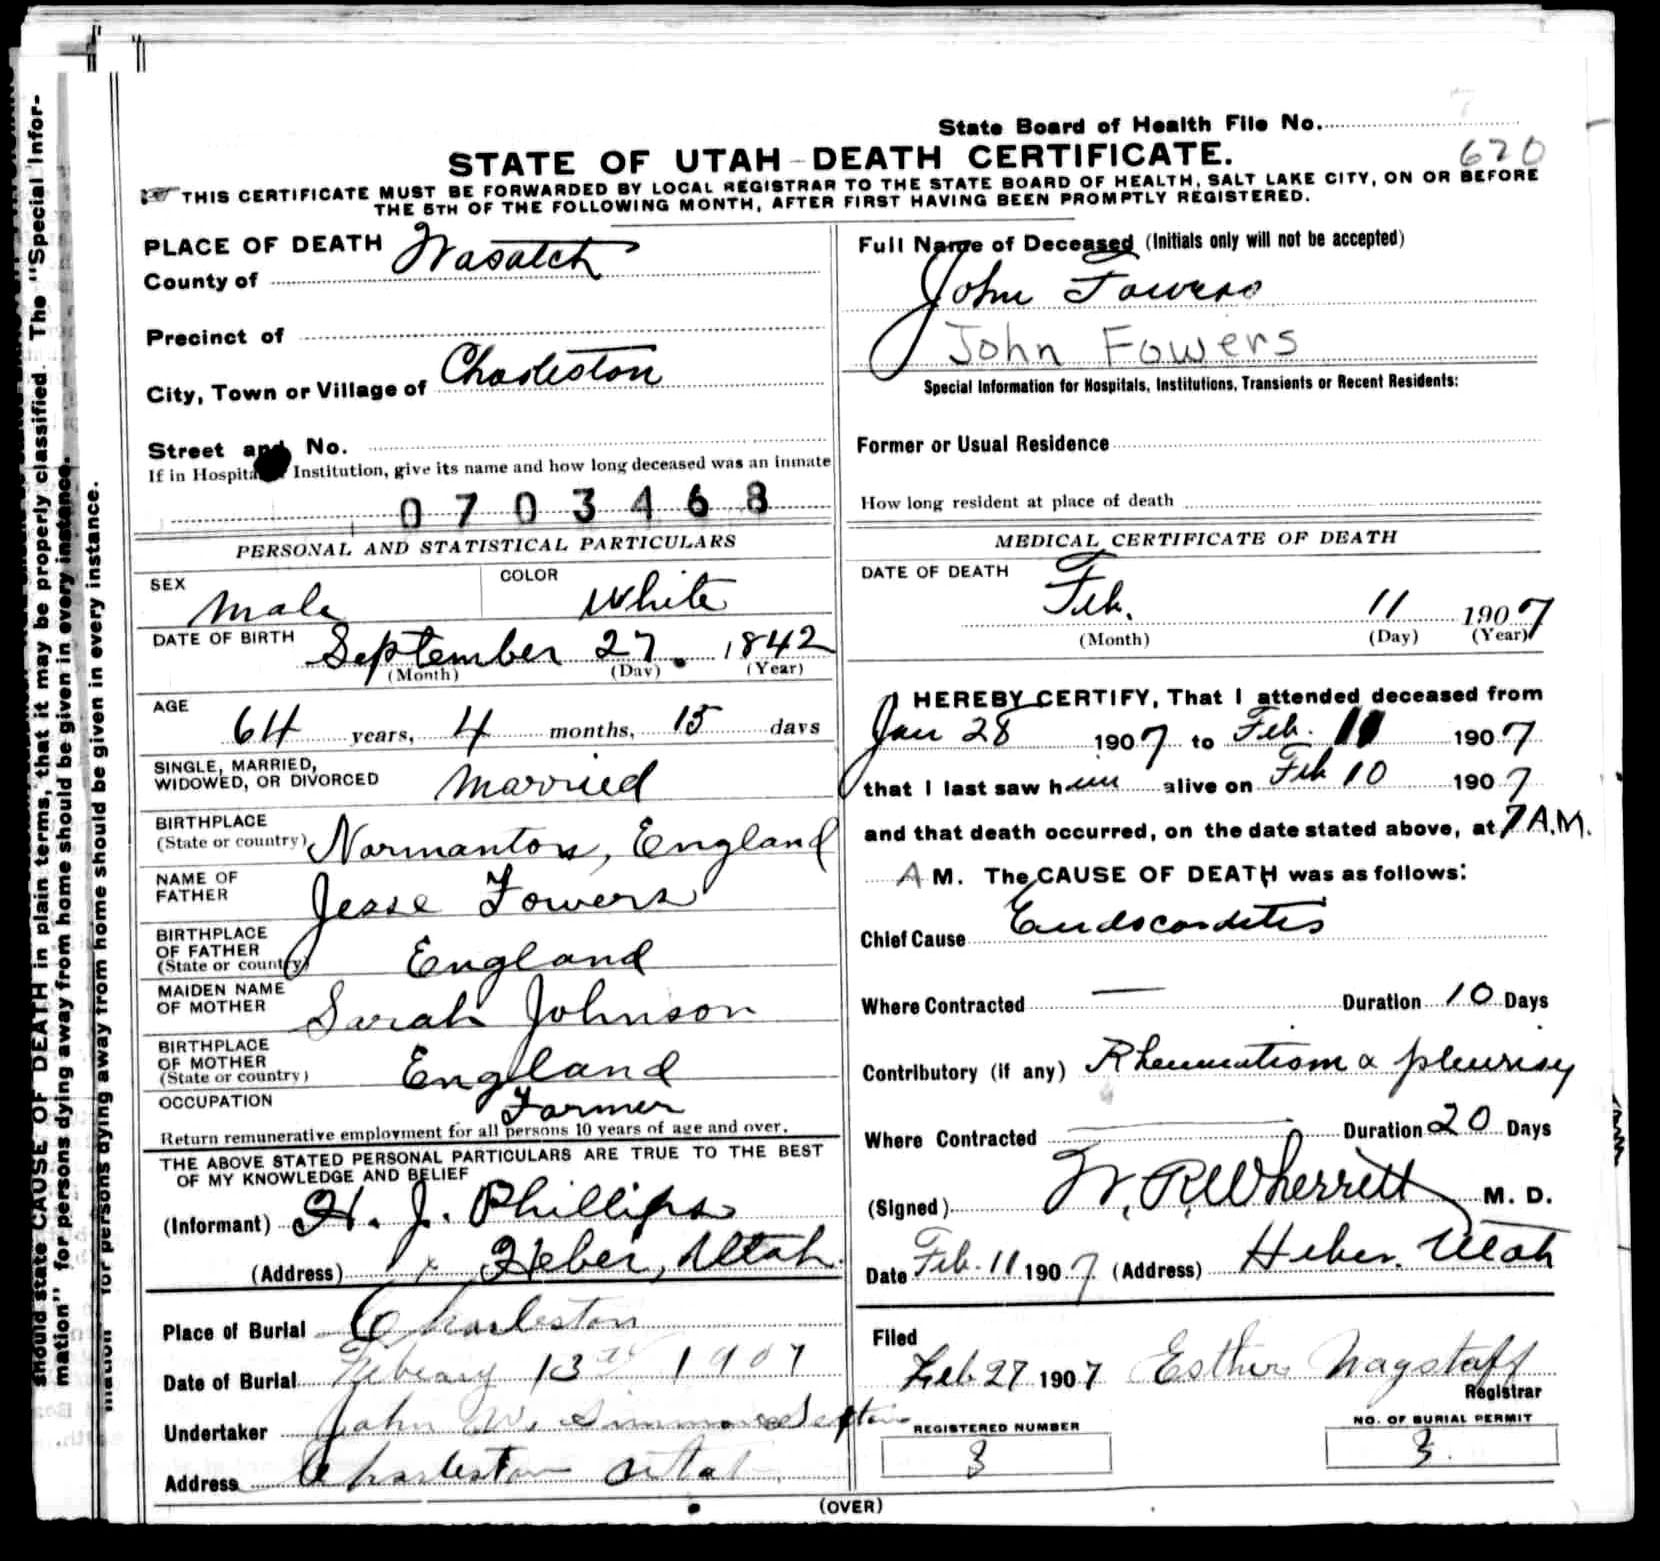 should state CAUSE OF DEATH in plain terms, that it may be properly classified. The "Special Infor-
mation" for persons dying away from home should be given in every instance.
for persons dying away from home should be given in every instance.
State Board of Health File No.
STATE OF UTAH-DEATH CERTIFICATE.
620
THIS CERTIFICATE MUST BE FORWARDED BY LOCAL REGISTRAR TO THE STATE BOARD OF HEALTH, SALT LAKE CITY, ON OR BEFORE
THE 5TH OF THE FOLLOWING MONTH, AFTER FIRST HAVING BEEN PROMPTLY REGISTERED.
PLACE OF DEATH
County of Wasatch
Precinct of
City, Town or Village of Charleston
Street and No.
If in Hospital Institution, give its name and how long deceased was an inmate
0703468
PERSONAL AND STATISTICAL PARTICULARS
SEX Male COLOR White
DATE OF BIRTH September 27. 1842
(Month) (Day) (Year)
AGE 64 years, 4 months, 15 days
SINGLE, MARRIED,
WIDOWED, OR DIVORCED Married
BIRTHPLACE
(State or country) Normanton, England
NAME OF
FATHER Jesse Fowers
BIRTHPLACE
OF FATHER
(State or country) England
MAIDEN NAME
OF MOTHER Sarah Johnson
BIRTHPLACE
OF MOTHER
(State or country) England
OCCUPATION Farmer
Return remunerative employment for all persons 10 years of age and over.
THE ABOVE STATED PERSONAL PARTICULARS ARE TRUE TO THE BEST
OF MY KNOWLEDGE AND BELIEF
(Informant) H. J. Phillips
(Address) Heber, Utah.
Place of Burial Charleston
Date of Burial Febuary 13th 1907
Undertaker John W. Simmons Sexton
Address Charleston Utah
Full Name of Deceased (Initials only will not be accepted)
John Fowers
John Fowers
Special Information for Hospitals, Institutions, Transients or Recent Residents:
Former or Usual Residence
How long resident at place of death
MEDICAL CERTIFICATE OF DEATH
DATE OF DEATH Feb. 11 1907
(Month) (Day) (Year)
I HEREBY CERTIFY, That I attended deceased from
Jan 28 1907 to Feb. 11 1907
that I last saw him alive on Feb 10 1907
and that death occurred, on the date stated above, at 7 A.M.
A M. The CAUSE OF DEATH was as follows:
Chief Cause Endocarditis
Where Contracted — Duration 10 Days
Contributory (if any) Rheumatism & pleurisy
Where Contracted — Duration 20 Days
(Signed) W. R. Wherritt M. D.
Date Feb. 11 1907. (Address) Heber. Utah
Filed
Feb 27 1907 Esther Wagstaff
Registrar
REGISTERED NUMBER
3
NO. OF BURIAL PERMIT
3.
(OVER)